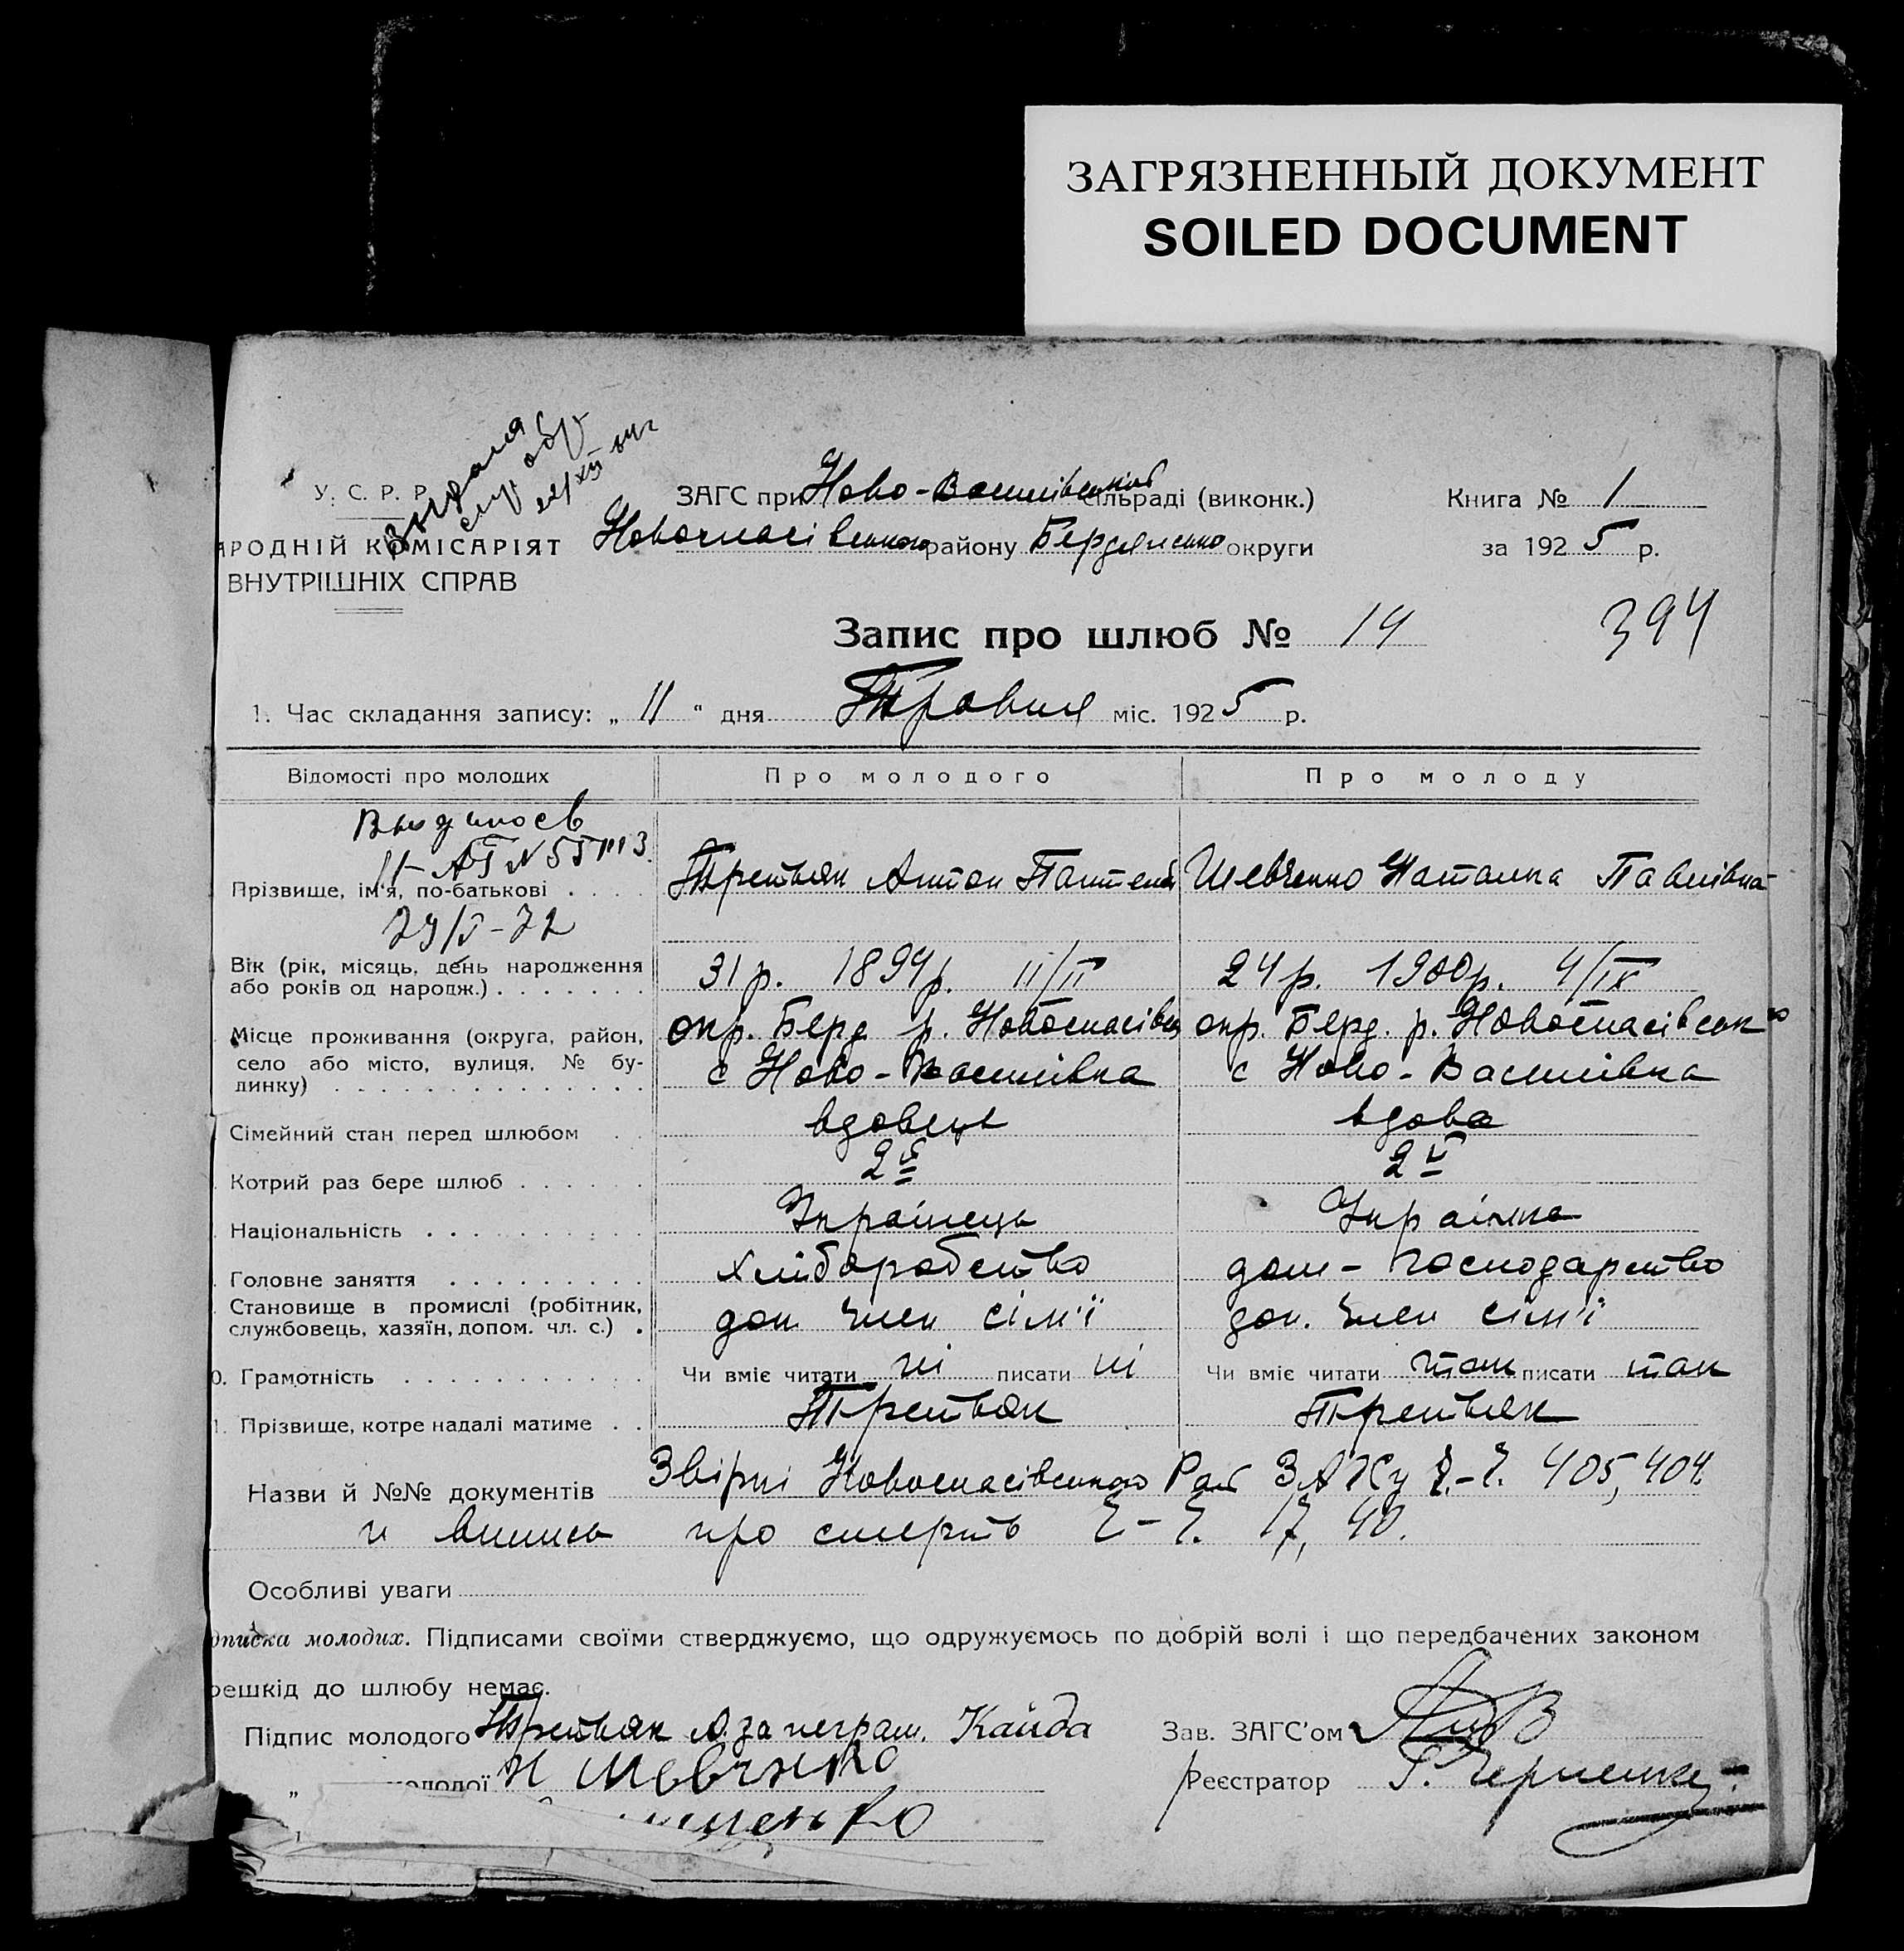 ЗАГРЯЗНЕННЫЙ ДОКУМЕНТ
SOILED DOCUMENT
У. С. Р. Р.
АРОДНІЙ КОМІСАРІЯТ
ВНУТРІШНІХ СПРАВ
ЗАГС при Ново-Василівській сільраді (виконк.)
Новоспасівського району Бердянсько округи
Книга № 1
за 1925 р.
Запис про шлюб № 14
394
1. Час складання запису: „ 11 “ дня Травня міс. 1925 р.
Відомості про молодих
Про молодого
Про молоду
Прізвище, ім'я, по-батькові
Третьяк Антон Пантел
Шевченко Наталка Павлівна
Вік (рік, місяць, день народження або років од народж.)
31 р. 1894 р. 11/II
24 р. 1900 р. 4/IX
Місце проживання (округа, район, село або місто, вулиця, № будинку)
окр. Берд р. Новоспасівськ
с Ново-Василівка
окр. Берд. р. Новоспасівсько
с Ново-Василівка
Сімейний стан перед шлюбом
вдовець
вдова
Котрий раз бере шлюб
2й
2й
Національність
Українець
Українка
Головне заняття
хліборобство
дом-господарство
Становище в промислі (робітник, службовець, хазяїн, допом. чл. с.)
доп. член сім'ї
доп. член сім'ї
0. Грамотність
Чи вміє читати ні писати ні
Чи вміє читати так писати так
1. Прізвище, котре надалі матиме
Третьяк
Третьяк
Назви й №№ документів Звірки Новоспасівського Раб ЗАГСу Ч.-Ч. 405, 404.
и випись про смерть Ч-Ч. 17, 40.
Особливі уваги
дписка молодих. Підписами своїми стверджуємо, що одружуємось по добрій волі і що передбачених законом
решкід до шлюбу немає.
Підпис молодого Третьяк А. за неграм. Кайда
Зав. ЗАГС'ом
„ молодої Н Шевченко
Реєстратор Г.